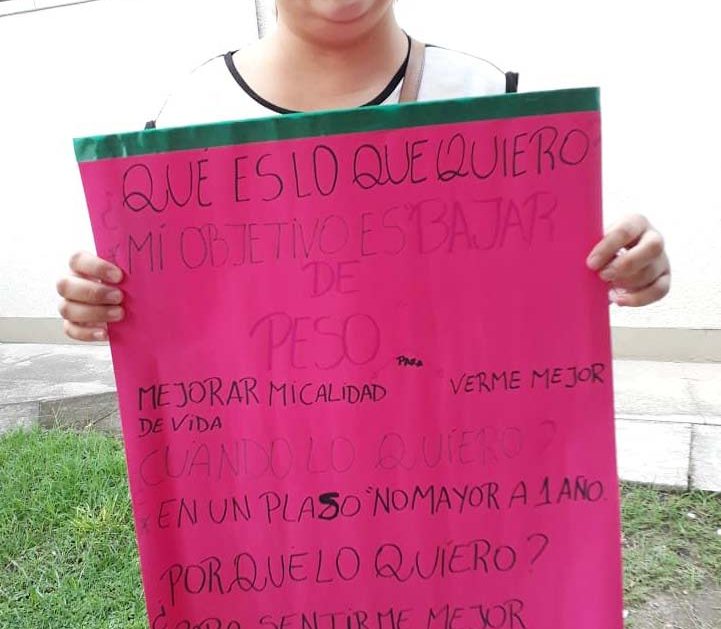 ¿QUÉ ES LO QUE QUIERO?
* MI OBJETIVO ES "BAJAR
DE
PESO
PARA
MEJORAR MI CALIDAD VERME MEJOR
DE VIDA
CUANDO LO QUIERO?
* EN UN PLASO "NO MAYOR A 1 AÑO.
¿PORQUE LO QUIERO?
PARA SENTIRME MEJOR